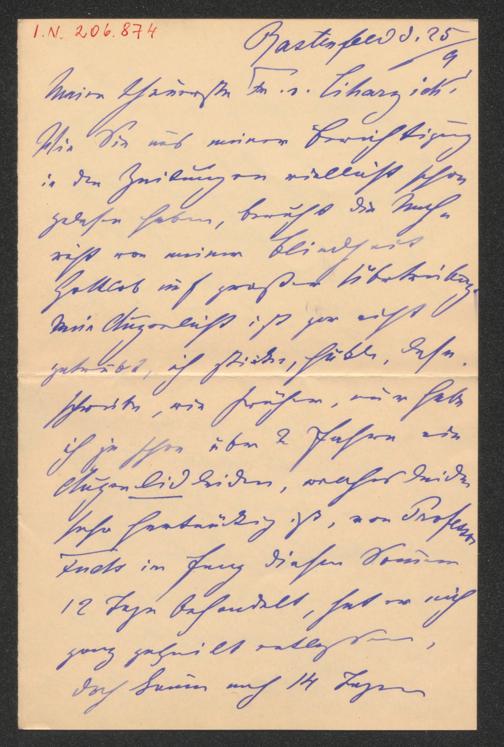 I.N. 206.874
Rastenfeld d. 25/9
Meine theuerste Fr. v. Liharzick!
Wie Sie aus meiner Berichtigung
in den Zeitungen vielleicht schon
gelesen haben, beruht die Nach-
richt von meiner Blindheit
Gottlob auf großer Übertreibung.
Mein Augenlicht ist gar nicht
getrübt, ich sticke, häkle, lese,
schreibe, wie früher, nur habe
ich ja schon über 2 Jahre ein
Augenlidleiden, welches leider
sehr hartnäckig ist, von Professor
Fuchs im Juny diesen Sommer
12 Tage behandelt, hat er mich
ganz geheilt entlassen,
doch kaum nach 14 Tagen